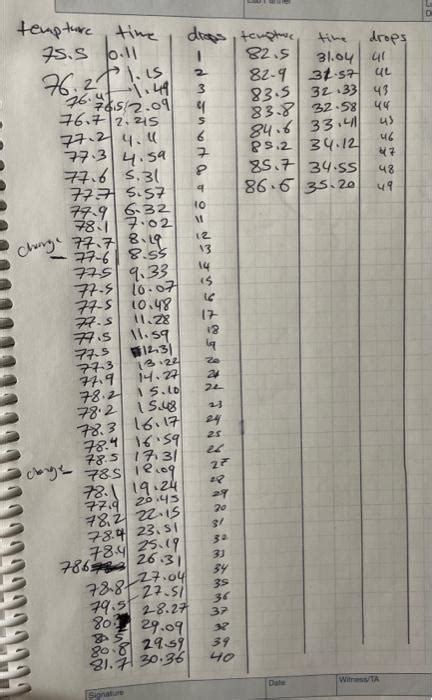 tempture time drops tempture time drops
75.5 0.11 1 82.5 31.04 41
76.2 1.15 2 82.9 31.57 42
76.4 1.49 3 83.5 32.33 43
76.5 2.09 4 83.8 32.58 44
76.7 2.215 5 84.6 33.41 45
77.2 4.11 6 85.2 34.12 46
77.3 4.59 7 85.7 34.55 48
47
77.6 5.31 8 86.6 35.20 49
77.7 5.57 9
77.9 6.32 10
78.1 7.02 11
change 77.7 8.19 12
77.6 8.55 13
77.5 9.33 14
77.5 10.07 15
77.5 10.48 16
77.5 11.28 17
77.5 11.59 18
77.5 12.31 19
77.3 13.22 20
77.9 14.27 21
78.2 15.10 22
78.2 15.48 23
78.3 16.17 24
78.4 16.59 25
78.5 17.31 26
change 78.5 18.09 27
78.1 19.24 28
77.9 20.45 29
78.2 22.15 30
78.4 23.51 31
78.4 25.19 32
78.6 26.31 33
78.8 27.04 34
79.5 27.51 35
28.27 36
37
80. 29.09 38
80.8 29.59 39
81.7 30.36 40
Signature Date Witness/TA